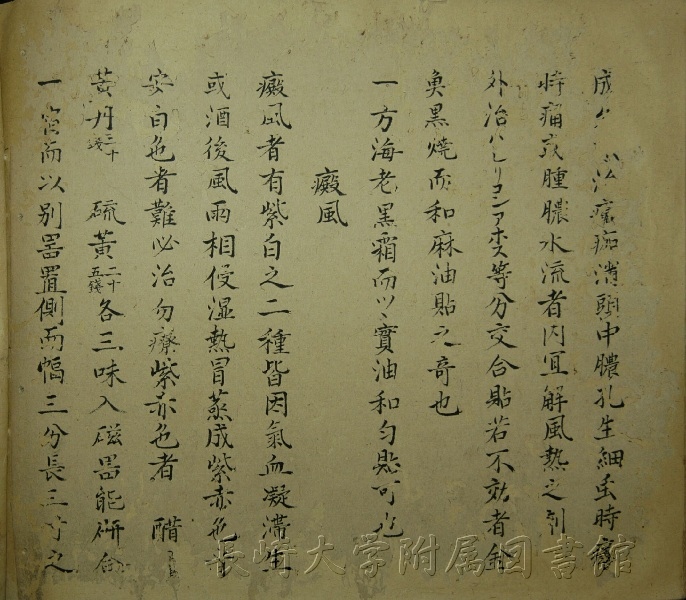 治瘡痂潰頭中膿孔生細虫時癢
時痛或腫膿水流者内宜解風熱之剤
外治ハシリコンアホス等分交合貼若不効者金
奐黒焼而和麻油貼之奇也
一方海老黒霜而以實油和匀貼可也
癜風
癜風者有紫白之二種皆因氣血凝滞生
或酒後風雨相侵湿熱冒蒸成紫赤色
安白色者難必治勿療紫赤色者 醋
黄丹 二十錢 硫黄 二十五錢 各三味入磁器能研合
一 而以別器置側而幅三分長三寸之
長崎大学附属図書館